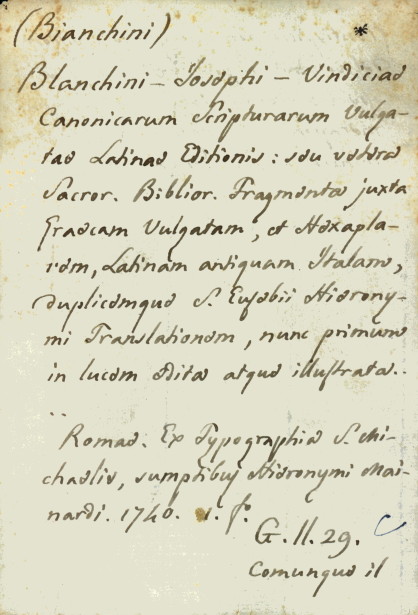 (Bianchini) *
Blanchini - Josephi - Vindiciae
Canonicarum Scripturarum Vulga-
tae Latinae Editionis: seu vetera
Sacror. Biblior. Fragmenta juxta
Graecam Vulgatam, et Hexapla-
rem, Latinam antiquam Italam,
duplicemque S. Eusebii Hierony-
mi Translationem, nunc primum
in lucem edita atque illustrata..
..
Romae. Ex Typographia S. Mi-
chaelis, sumptibus Hieronymi Mai-
nardi. 1740. 1. fo.
G. II. 29. C
Comunque il